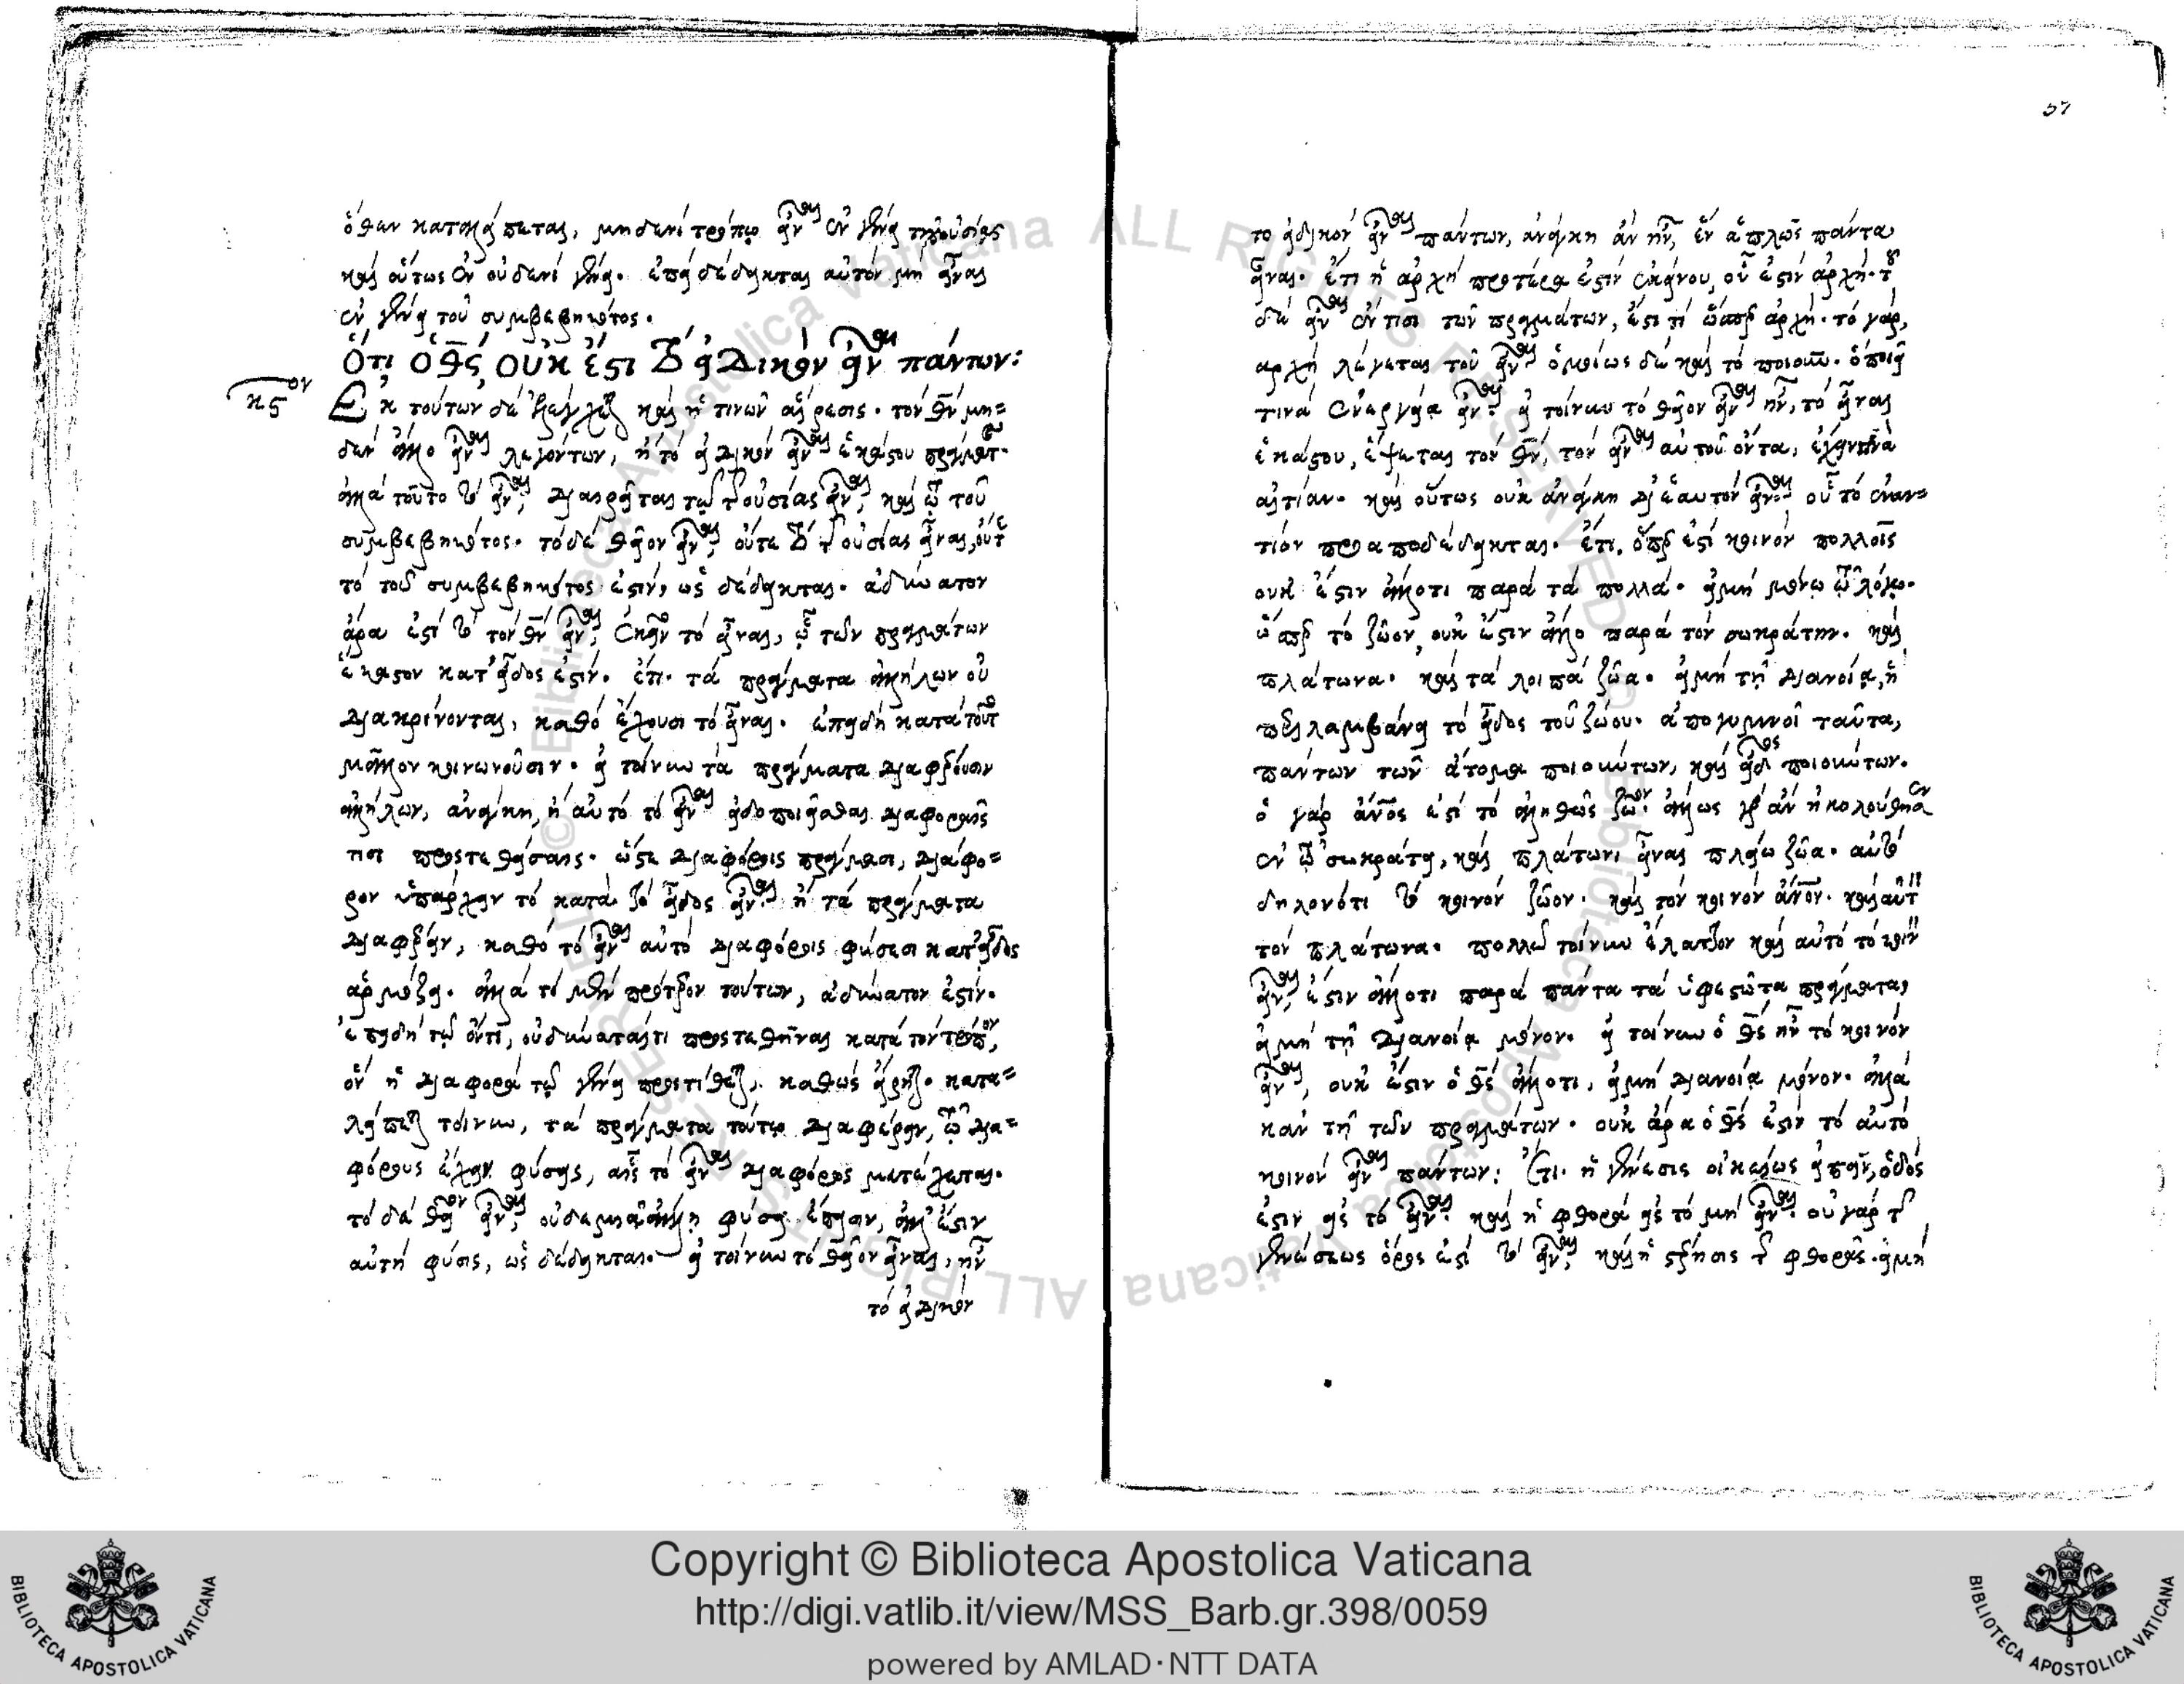 ὅθεν καταλείπεται, μηδενὶ τρόπῳ εἶναι ἐν γένει τῆς οὐσίας
καὶ οὕτως ἐν οὐδενὶ γένει. ἐπεὶ δέδεικται αὐτὸν μὴ εἶναι
ἐν γένει τοῦ συμβεβηκότος.
Ὅτι ὁ θς οὐκ ἔστι τὸ εἰδικὸν εἶναι πάντων:
κϛον
Ἐκ τούτων δὲ ἐλέγχεται καὶ ἡ τινῶν αἵρεσις. τὸν θν μη=
δὲν ἄλλο εἶναι λεγόντων, ἢ τὸ εἰδικὸν εἶναι ἑκάστου πράγματ.
ἀλλὰ τοῦτο τὸ εἶναι, διαιρεῖται τῷ τῆς οὐσίας εἶναι, καὶ τῷ τοῦ
συμβεβηκότος. τὸ δὲ θεῖον εἶναι, οὔτε τὸ τῆς οὐσίας εἶναι, οὔτε
τὸ τοῦ συμβεβηκότος ἐστίν, ὡς δέδεικται. ἀδύνατον
ἄρα ἐστὶ τὸ τὸν θν εἶναι, ἐκεῖνο τὸ εἶναι, ᾧ τῶν πραγμάτων
ἕκαστον κατ' εἶδος ἐστίν. ἔτι. τὰ πράγματα ἀλλήλων οὐ
διακρίνονται, καθὸ ἔχουσι τὸ εἶναι. ἐπειδὴ κατὰ τοῦτο
μᾶλλον κοινωνοῦσιν. εἰ τοίνυν τὰ πράγματα διαφέρουσιν
ἀλλήλων, ἀνάγκη, ἢ αὐτὸ τὸ εἶναι εἰδοποιεῖσθαι διαφοραῖς
τισι προστεθείσαις. ὥστε διαφόροις πράγμασι, διάφο=
ρον ὑπάρχειν τὸ κατὰ τὸ εἶδος εἶναι. ἢ τὰ πράγματα
διαφέρειν, καθὸ τὸ εἶναι αὐτὸ διαφόροις φύσεσι κατ' εἶδος
ἁρμόζει. ἀλλὰ τὸ μὲν πρότερον τούτων, ἀδύνατον ἐστίν.
ἐπειδὴ τῷ ὄντι, οὐ δύναταί τι προστεθῆναι κατὰ τὸν τρόπον,
ὃν ἡ διαφορὰ τῷ γένει προστίθεται, καθὼς εἴρηται. κατα=
λείπεται τοίνυν, τὰ πράγματα τούτῳ διαφέρειν, τῷ δια=
φόρους ἔχειν φύσεις, αἷς τὸ εἶναι διαφόρως μετέρχεται.
τὸ δὲ θεῖον εἶναι, οὐδεμιᾷ ἄλλῃ φύσει ἔπεισιν, ἀλλ' ἔστιν
αὐτὴ φύσις, ὡς δέδεικται. εἰ τοίνυν τὸ θεῖον εἶναι, ἦν
τὸ εἰδικὸν
57
το εἰδικὸν εἶναι πάντων, ἀνάγκη ἂν ἦν, ἓν ἁπλῶς πάντα
εἶναι. ἔτι ἡ ἀρχὴ προτέρα ἐστὶν ἐκείνου, οὗ ἐστὶν ἀρχή. τοῦ
δὲ εἶναι ἔν τισι τῶν πραγμάτων, ἐστί τι ὥσπερ ἀρχή. τὸ γὰρ,
ἀρχὴ λέγεται τοῦ εἶναι ὁμοίως δὲ καὶ τὸ ποιοῦν. ὃ ποιεῖ
τινὰ ἐνεργείᾳ εἶναι. εἰ τοίνυν τὸ θεῖον εἶναι ἦν, τὸ εἶναι
ἑκάστου, ἕψεται τὸν θν, τὸν εἶναι αὐτοῦ ὄντα, ἔχειν τινὰ
αἰτίαν. καὶ οὕτως οὐκ ἀνάγκη δι' ἑαυτὸν εἶναι. οὗ τὸ ἐναν=
τίον προαποδέδεικται. ἔτι, ὅπερ ἐστὶ κοινὸν πολλοῖς
οὐκ ἔστιν ἄλλό τι παρὰ τὰ πολλά. εἰ μὴ μόνῳ τῷ λόγῳ.
ὥσπερ τὸ ζῷον, οὐκ ἔστιν ἄλλο παρὰ τὸν σωκράτην. καὶ
πλάτωνα. καὶ τὰ λοιπὰ ζῷα. εἰ μὴ τῇ διανοίᾳ, ἣ
περιλαμβάνει τὸ εἶδος τοῦ ζώου. ἀπογυμνοῖ ταῦτα,
πάντων τῶν ἄτομα ποιούντων, καὶ εἶδος ποιούντων.
ὁ γὰρ ἄνος ἐστὶ τὸ ἀληθῶς ζῷον. ἄλλως γὰρ ἂν ἠκολούθησεν
ἐν τῷ σωκράτει, καὶ πλάτωνι εἶναι πλείω ζῷα. αὐτὸ
δηλονότι τὸ κοινὸν ζῷον. καὶ τὸν κοινὸν ἄνον. καὶ αὐτὸν
τὸν πλάτωνα. πολλῷ τοίνυν ἔλαττον καὶ αὐτὸ τὸ κοινὸν
εἶναι, ἐστιν ἄλλό τι παρὰ πάντα τὰ ὑφεστῶτα πράγματα,
εἰ μὴ τῇ διανοίᾳ μόνον. εἰ τοίνυν ὁ θς ἦν τὸ κοινὸν
εἶναι, οὐκ ἔστιν ὁ θς ἄλλό τι, εἰ μὴ διανοίᾳ μόνον. ἀλλὰ
κἀν τῇ τῶν πραγμάτων. οὐκ ἄρα ὁ θς ἐστὶν τὸ αὐτὸ
κοινὸν εἶναι πάντων: Ἔτι. ἡ γένεσις οἰκείως εἰπεῖν, ὁδός
ἐστιν εἰς τὸ εἶναι. καὶ ἡ φθορὰ εἰς τὸ μὴ εἶναι. οὐ γὰρ τῆς
γενέσεως ὅρος ἐστὶ τὸ εἶναι, καὶ ἡ στέρησις τῆς φθορᾶς. εἰ μὴ
Copyright © Biblioteca Apostolica Vaticana
http://digi.vatlib.it/view/MSS_Barb.gr.398/0059
powered by AMLAD·NTT DATA
BIBLIOTECA APOSTOLICA VATICANA
BIBLIOTECA APOSTOLICA VATICANA